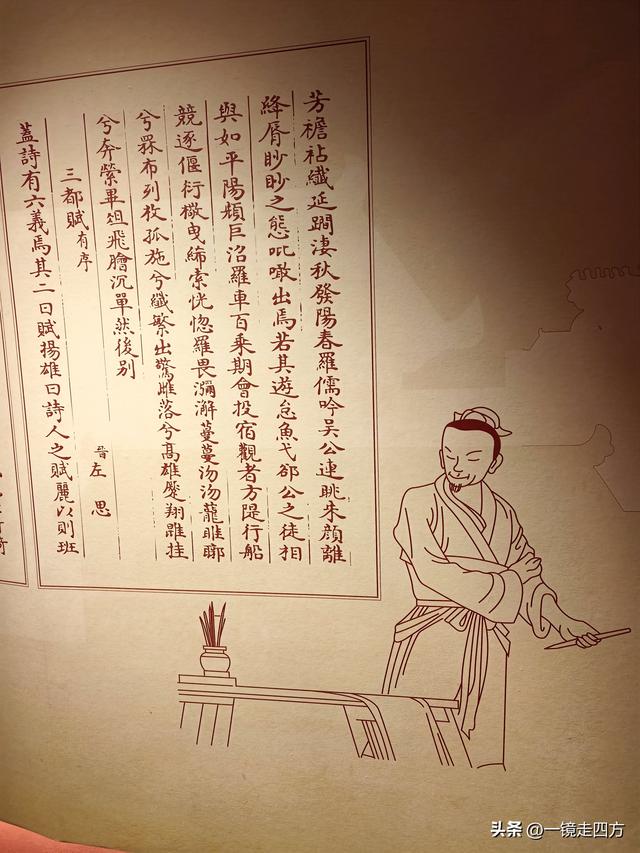 芳襜袩纖延躢淒秋發陽春羅儒吟吳公連眺朱顏離
絳脣眇眇之態吡噉出焉若其遊怠魚弋郤公之徒相
與如平陽頻巨沼羅車百乘期會投宿觀者方隄行船
競逐偃衍撇曳絺索恍惚羅畏瀰澥蔓蔓沕沕蘢睢聊
兮罧布列枚孤施兮纖繁出驚雌落兮高雄蹷翔鵾挂
兮奔縈畢俎飛膾沉單然後別
三都賦有序 晉左思
蓋詩有六義焉其二曰賦揚雄曰詩人之賦麗以則班
头条 @一镜走四方